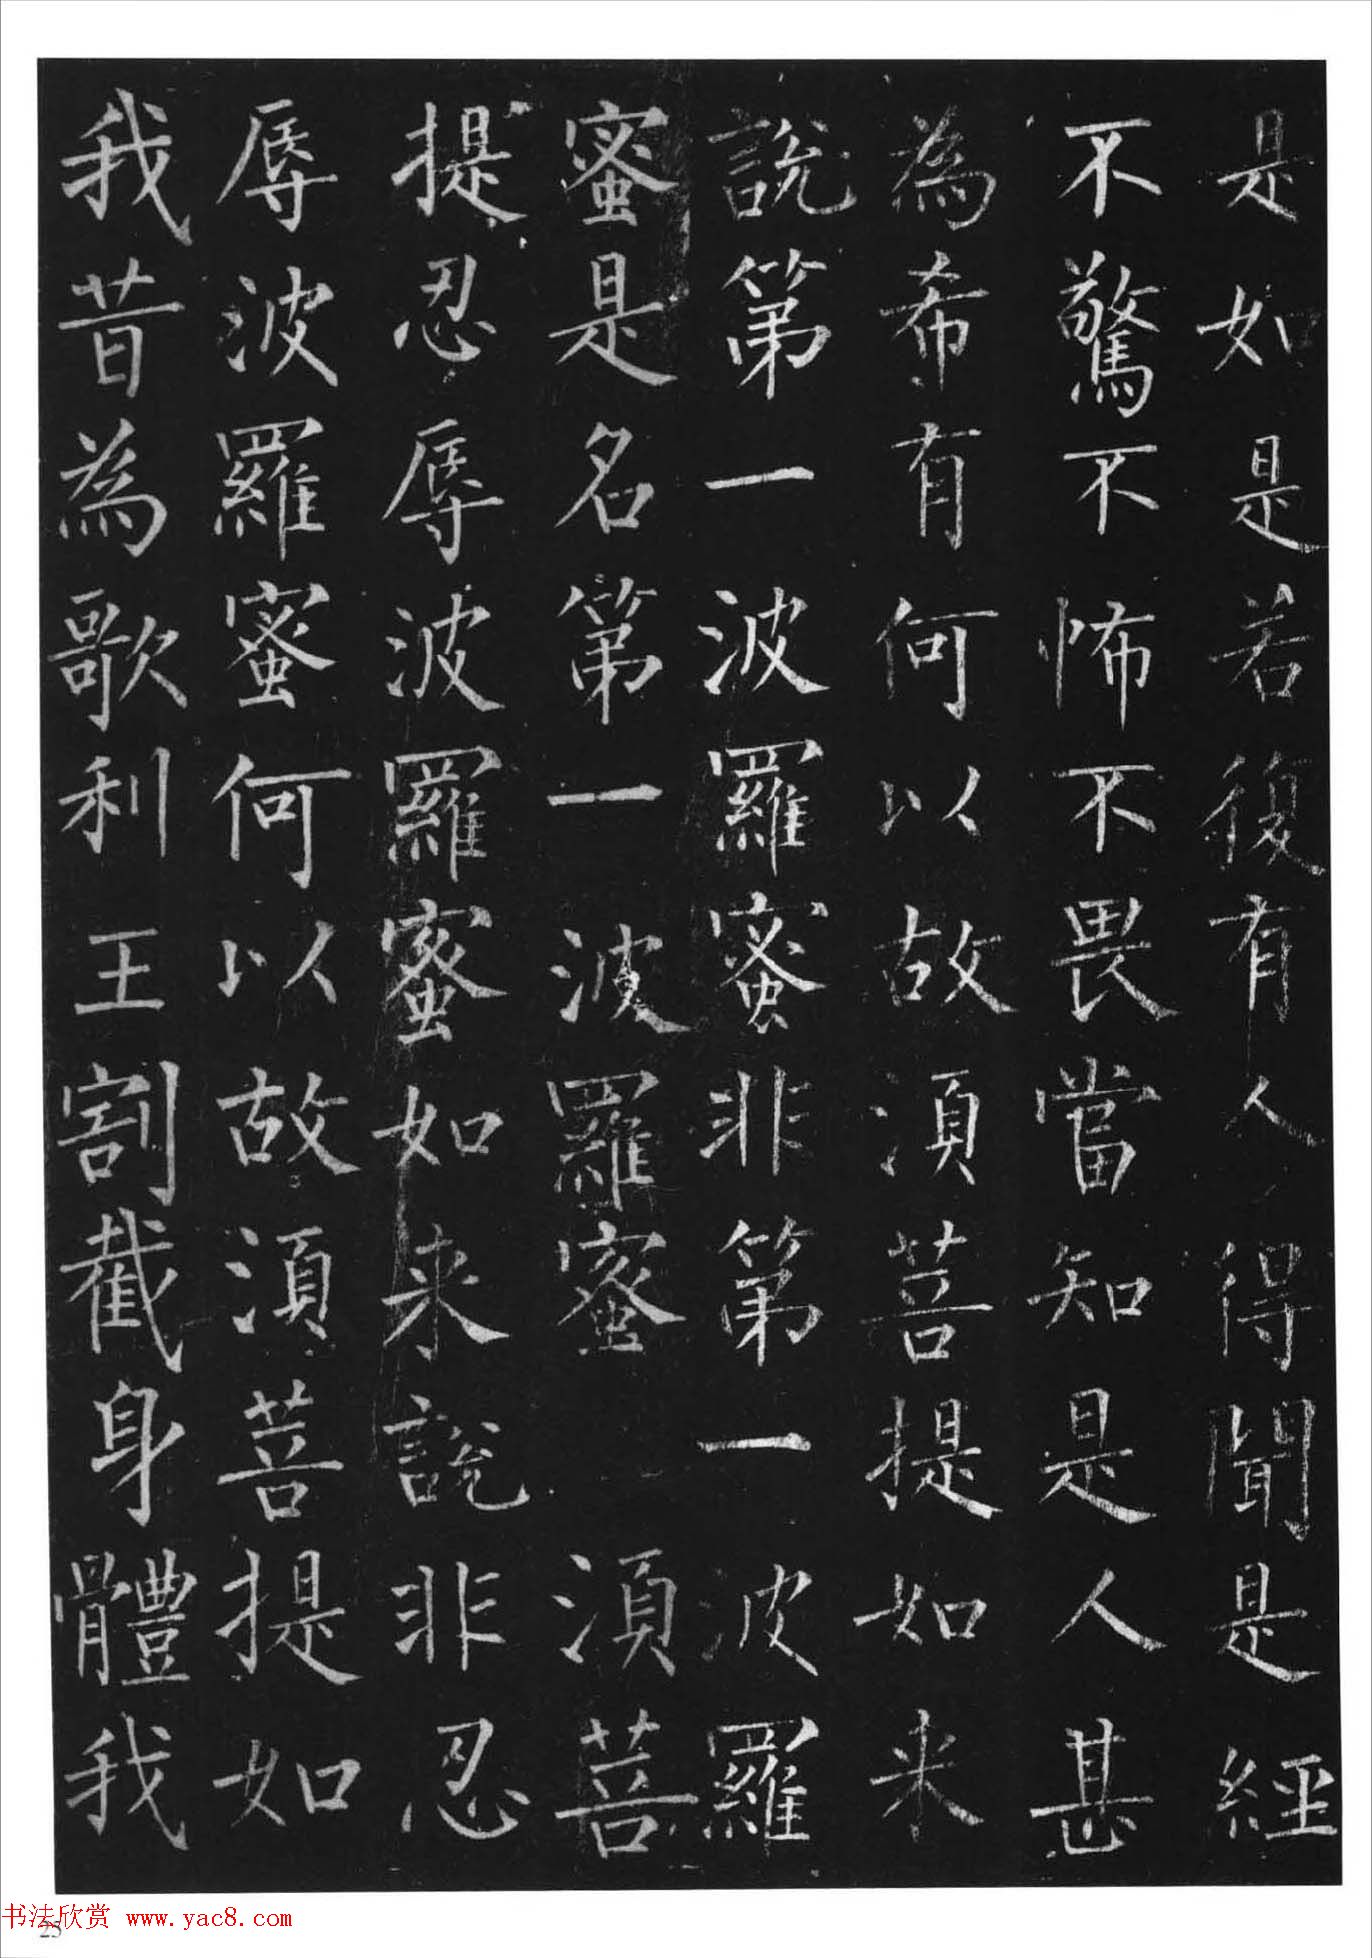 是如是若復有人得聞是經
不驚不怖不畏當知是人甚
為希有何以故須菩提如来
說第一波羅蜜非第一波羅
蜜是名第一波羅蜜 須菩
提忍辱波羅蜜如来說非忍
辱波羅蜜何以故須菩提如
我昔為歌利王割截身體我
书法欣赏 www.yac8.com
25